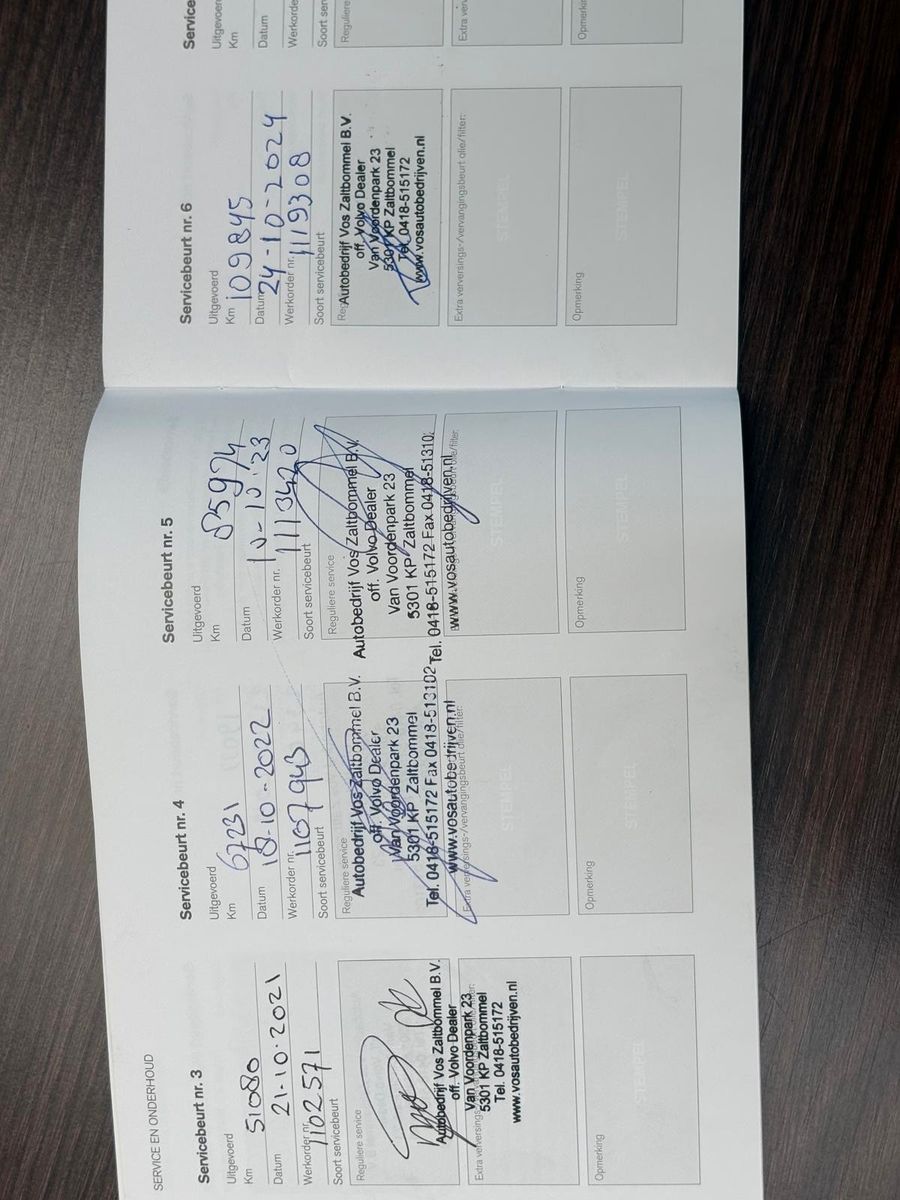 SERVICE EN ONDERHOUD
Servicebeurt nr. 3
Uitgevoerd
Km 51080
Datum 21-10-2021
Werkorder nr. 1102571
Soort servicebeurt
Reguliere service
Autobedrijf Vos Zaltbommel B.V.
off. Volvo Dealer
Van Voordenpark 23
5301 KP Zaltbommel
Tel. 0418-515172
www.vosautobedrijven.nl
Opmerking
STEMPEL
Servicebeurt nr. 4
Uitgevoerd
Km 67231
Datum 18-10-2022
Werkorder nr. 1107943
Soort servicebeurt
Reguliere service
Autobedrijf Vos Zaltbommel B.V.
off. Volvo Dealer
Van Voordenpark 23
5301 KP Zaltbommel
Tel. 0418-515172 Fax 0418-513102
www.vosautobedrijven.nl
Extra verversings-/vervangingsbeurt olie/filter:
STEMPEL
Opmerking
STEMPEL
Servicebeurt nr. 5
Uitgevoerd
Km 85974
Datum 10-10-'23
Werkorder nr. 1113420
Soort servicebeurt
Reguliere service
Autobedrijf Vos Zaltbommel B.V.
off. Volvo Dealer
Van Voordenpark 23
5301 KP Zaltbommel
Tel. 0418-515172 Fax 0418-51310
www.vosautobedrijven.nl
STEMPEL
Opmerking
STEMPEL
Servicebeurt nr. 6
Uitgevoerd
Km 109845
Datum 24-10-2024
Werkorder nr. 1119308
Soort servicebeurt
Autobedrijf Vos Zaltbommel B.V.
off. Volvo Dealer
Van Voordenpark 23
5301 KP Zaltbommel
Tel. 0418-515172
www.vosautobedrijven.nl
Extra verversings-/vervangingsbeurt olie/filter:
STEMPEL
Opmerking
STEMPEL
Service
Uitgevoerd
Km
Datum
Werkorde
Soort ser
Reguliere
Extra ver
Opmerking